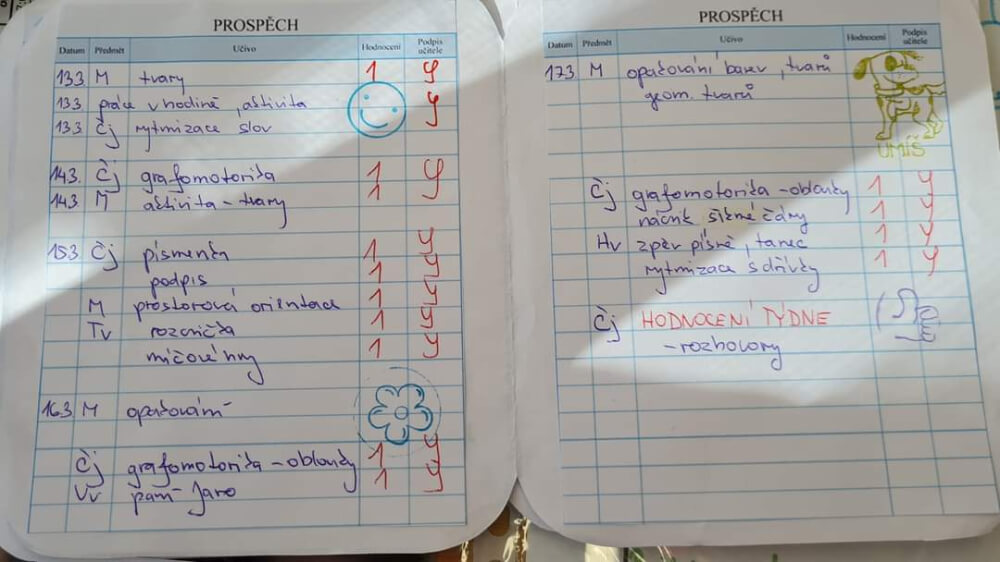 PROSPĚCH
Datum Předmět Učivo Hodnocení Podpis učitele
13.3. M tvary 1
13.3. práce v hodině, aktivita
13.3. Čj rytmizace slov
14.3. Čj grafomotorika 1
14.3. M aktivita - tvary 1
15.3. Čj písmenka 1
podpis 1
M prostorová orientace 1
Tv rozcvička 1
míčové hry 1
16.3. M opakování
Čj grafomotorika - obloučky 1
Vv paní Jaro 1
PROSPĚCH
Datum Předmět Učivo Hodnocení Podpis učitele
17.3. M opakování barev, tvarů
geom. tvarů
UMÍŠ
Čj grafomotorika - obloučky 1
nácvik šikmé čáry 1
Hv zpěv písně, tanec 1
rytmizace s dřívky 1
Čj HODNOCENÍ TÝDNE
- rozhovory